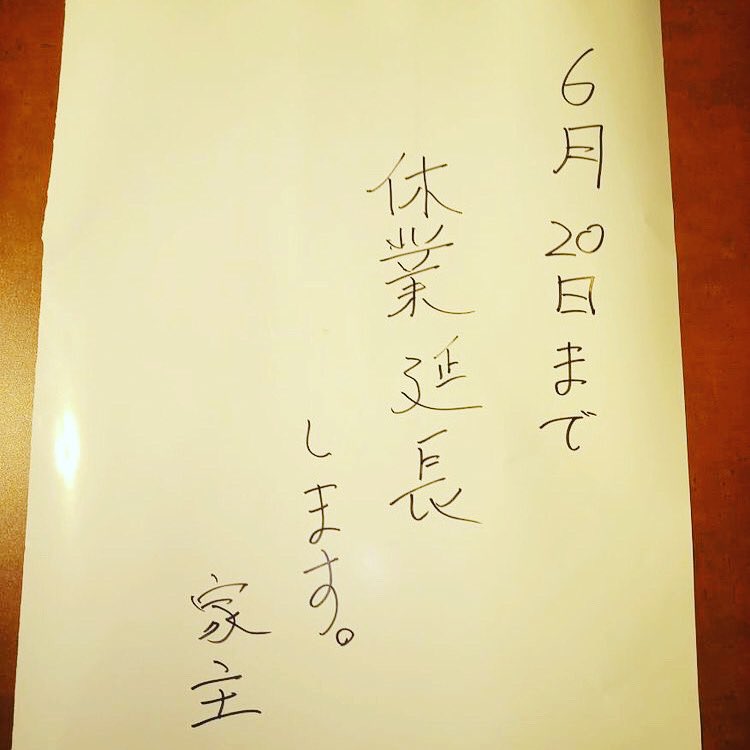 6月20日まで
休業延長
します。
家主